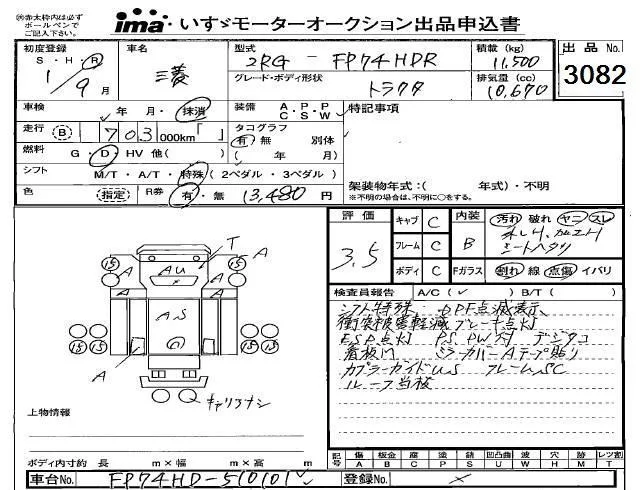 ㊟赤太枠内は必ず
ボールペンで
ご記入下さい。
ima いすゞモーターオークション出品申込書
初度登録 車名 型式 積載(kg) 出品No.
S・H・R 三菱 2RG - FP74HDR 11,500 3082
1/9月 グレード・ボディ形状 トラクタ 排気量(cc) 10,670
車検 年 月・抹消 装備 A・P・P C・S・W 特記事項
走行 B 703 000km「 」 タコグラフ 有・無 別体
燃料 G・D・HV 他( ) ( 年 月)
シフト M/T・A/T・特殊(2ペダル・3ペダル)
架装物年式:( 年式)・不明
色 (指定) R券 有・無 13,480円 ※不明の場合は、不明に○をする。
評価 3.5
キャブ C 内装 B 汚れ 破れ ヤニ スレ
フレーム C ネジ穴、加工穴
シートヘタリ
ボディ C Fガラス 割れ 線 点傷 イバリ
検査員報告 A/C(✓) B/T( )
シフト特殊 DPF点滅表示
衝突被害軽減ブレーキ点灯
ESP点灯 PS PW付 デジタコ
看板 ミラーカバーAテープ貼り
カプラーガイドUS フレームSC
ルーフ
A T A
15 A U 15
A A
A S
15 15
A
キャリアナシ
上物情報
ボディ内寸約 長 m×幅 m×高 m
記号 傷 A 板金 B 腐 C 塗 P 錆 S 凹凸曲 U 波 W 穴 H 跡 M レツ割 T
車台No. FP74HD-510101 登録No. ×